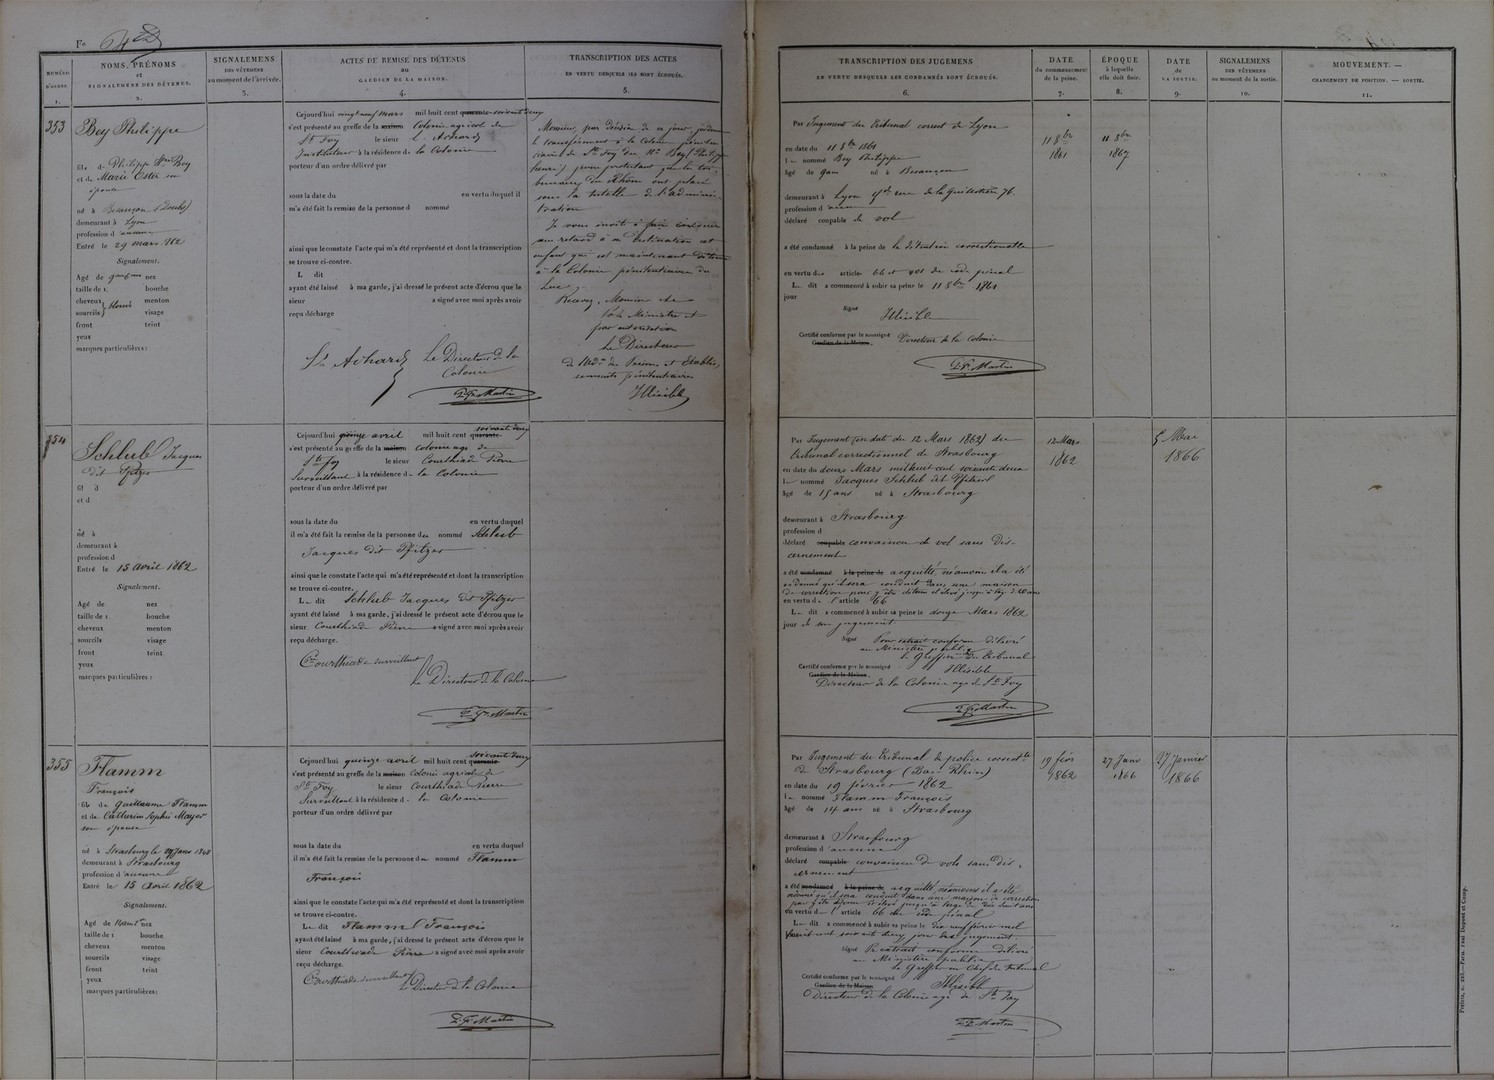 NUMÉRO D'ORDRE 1.
NOMS, PRÉNOMS
et
SIGNALEMENS DES DÉTENUS.
2.
SIGNALEMENS
DES VÊTEMENS
au moment de l'arrivée.
3.
ACTES DE REMISE DES DÉTENUS
au
GARDIEN DE LA MAISON.
4.
TRANSCRIPTION DES ACTES
EN VERTU DESQUELS ILS SONT ÉCROUÉS.
5.
TRANSCRIPTION DES JUGEMENS
EN VERTU DESQUELS LES CONDAMNÉS SONT ÉCROUÉS.
6.
DATE
du commencement
de la peine.
7.
ÉPOQUE
à laquelle
elle doit finir.
8.
DATE
de
LA SORTIE.
9.
SIGNALEMENS
DES VÊTEMENS
au moment de la sortie.
10.
MOUVEMENT. —
CHANGEMENT DE POSITION. — SORTIE.
11.
353
Bey Philippe
fils de Philippe Bey
et de Marie Ester
épouse
né à Besançon (Doubs)
demeurant à Lyon
profession d'aucune
Entré le 29 mars 1862
Signalement.
Agé de nez
taille de 1. bouche
cheveux blonds menton
sourcils visage
front teint
yeux
marques particulières:
Cejourd'hui vingt neuf mars mil huit cent quarante soixante deux
s'est présenté au greffe de la maison Colonie agricole de
Ste Foy le sieur Achard
Instituteur à la résidence de la Colonie
porteur d'un ordre délivré par
sous la date du en vertu duquel il
m'a été fait la remise de la personne d nommé
ainsi que le constate l'acte qui m'a été représenté et dont la transcription
se trouve ci-contre.
L dit
ayant été laissé à ma garde, j'ai dressé le présent acte d'écrou que le
sieur a signé avec moi après avoir
reçu décharge
Achard Le Directeur de la
Colonie
Martin
Monsieur, par décision de ce jour,
le transfèrement à la Colonie
de Ste Foy du Né Bey Philippe
jeune protestant que le tri-
bunal du Rhône ont placé
sous la tutelle de l'adminis-
tration
Je vous invite à faire
sans retard à sa destination cet
enfant qui est maintenant
à la Colonie pénitentiaire du
Luc.
Recevez, Monsieur
Le Ministre et
par autorisation
Le Directeur
des Prisons et Etablis-
sements pénitentiaires
Illisible
Par Jugement du Tribunal correct de Lyon
en date du 11 8bre 1861
le nommé Bey Philippe
âgé de 9 ans né à Besançon
demeurant à Lyon rue de la Guillotière 76.
profession d'aucune
déclaré coupable de vol
a été condamné à la peine de la détention correctionnelle
en vertu des articles 66 et 401 du code pénal
L dit a commencé à subir sa peine le 11 8bre 1861
jour
Signé
Illisible
Certifié conforme par le soussigné Directeur de la Colonie
Gardien de la Maison.
Martin
11 8bre
1861
11 8bre
1867
354
Schlub Jacques
dit Pfitzer
fil d
et d
né à
demeurant à
profession d
Entré le 15 avril 1862
Signalement.
Agé de nez
taille de 1. bouche
cheveux menton
sourcils visage
front teint
yeux
marques particulières:
Cejourd'hui quinze avril mil huit cent quarante soixante deux
s'est présenté au greffe de la maison colonie agr. de
Ste Foy le sieur Courthiade Pierre
Surveillant à la résidence de la Colonie
porteur d'un ordre délivré par
sous la date du en vertu duquel
il m'a été fait la remise de la personne du nommé Schlub
Jacques dit Pfitzer
ainsi que le constate l'acte qui m'a été représenté et dont la transcription
se trouve ci-contre.
Le dit Schlub Jacques dit Pfitzer
ayant été laissé à ma garde, j'ai dressé le présent acte d'écrou que le
sieur Courthiade Pierre a signé avec moi après avoir
reçu décharge.
Courthiade surveillant
Le Directeur de la Colonie
Martin
Par Jugement en date du 12 Mars 1862 du
tribunal correctionnel de Strasbourg
en date du douze Mars mil huit cent soixante deux
le nommé Jacques Schlub dit Pfitzer
âgé de 15 ans né à Strasbourg
demeurant à Strasbourg
profession d
déclaré coupable convaincu de vol sans dis-
cernement
a été condamné à la peine de acquitté, néamoins il a été
ordonné qu'il sera conduit dans une maison
de correction pour y être détenu et élevé jusqu'à l'age de 20 ans
en vertu de l'article 66
Le dit a commencé à subir sa peine le douze Mars 1862
jour de son jugement
Signé Pour extrait conforme délivré
au Ministère public
le Greffier du tribunal
Certifié conforme par le soussigné Illisible
Gardien de la Maison.
Directeur de la Colonie agr. de Ste Foy
Martin
12 Mars
1862
5 Mai
1866
355
Flamm
François
fils de Guillaume Flamm
et de Catherine Sophie Mayer
son épouse
né à Strasbourg le 27 Janv 1848
demeurant à Strasbourg
profession d'aucune
Entré le 15 avril 1862
Signalement.
Agé de nez
taille de 1 bouche
cheveux menton
sourcils visage
front teint
yeux
marques particulières:
Cejourd'hui quinze avril mil huit cent quarante soixante deux
s'est présenté au greffe de la maison Colonie agricole de
Ste Foy le sieur Courthiade Pierre
Surveillant à la résidence de la Colonie
porteur d'un ordre délivré par
sous la date du en vertu duquel
il m'a été fait la remise de la personne du nommé Flamm
François
ainsi que le constate l'acte qui m'a été représenté et dont la transcription
se trouve ci-contre.
Le dit Flamm François
ayant été laissé à ma garde, j'ai dressé le présent acte d'écrou que le
sieur Courthiade Pierre a signé avec moi après avoir
reçu décharge.
Courthiade surveillant
Le Directeur de la Colonie
Martin
Par Jugement du Tribunal de police correctlle
de Strasbourg (Bas Rhin)
en date du 19 février 1862
le nommé Flamm François
âgé de 14 ans né à Strasbourg
demeurant à Strasbourg
profession d'aucune
déclaré coupable convaincu de vols sans dis-
cernement
a été condamné à la peine de acquitté, néamoins il a été
ordonné qu'il sera conduit dans une maison de correction
pour y être détenu et élevé jusqu'à l'age de dix huit ans
en vertu de l'article 66 du code pénal
Le dit a commencé à subir sa peine le dix neuf février mil
huit cent soixante deux jour du jugement.
Signé Pr extrait conforme délivré
au Ministère public
le Greffier en Chef du tribunal
Certifié conforme par le soussigné Illisible
Gardien de la Maison
Directeur de la Colonie agr. de Ste Foy
Martin
19 févr
1862
27 Janv
1866
27 Janvier
1866